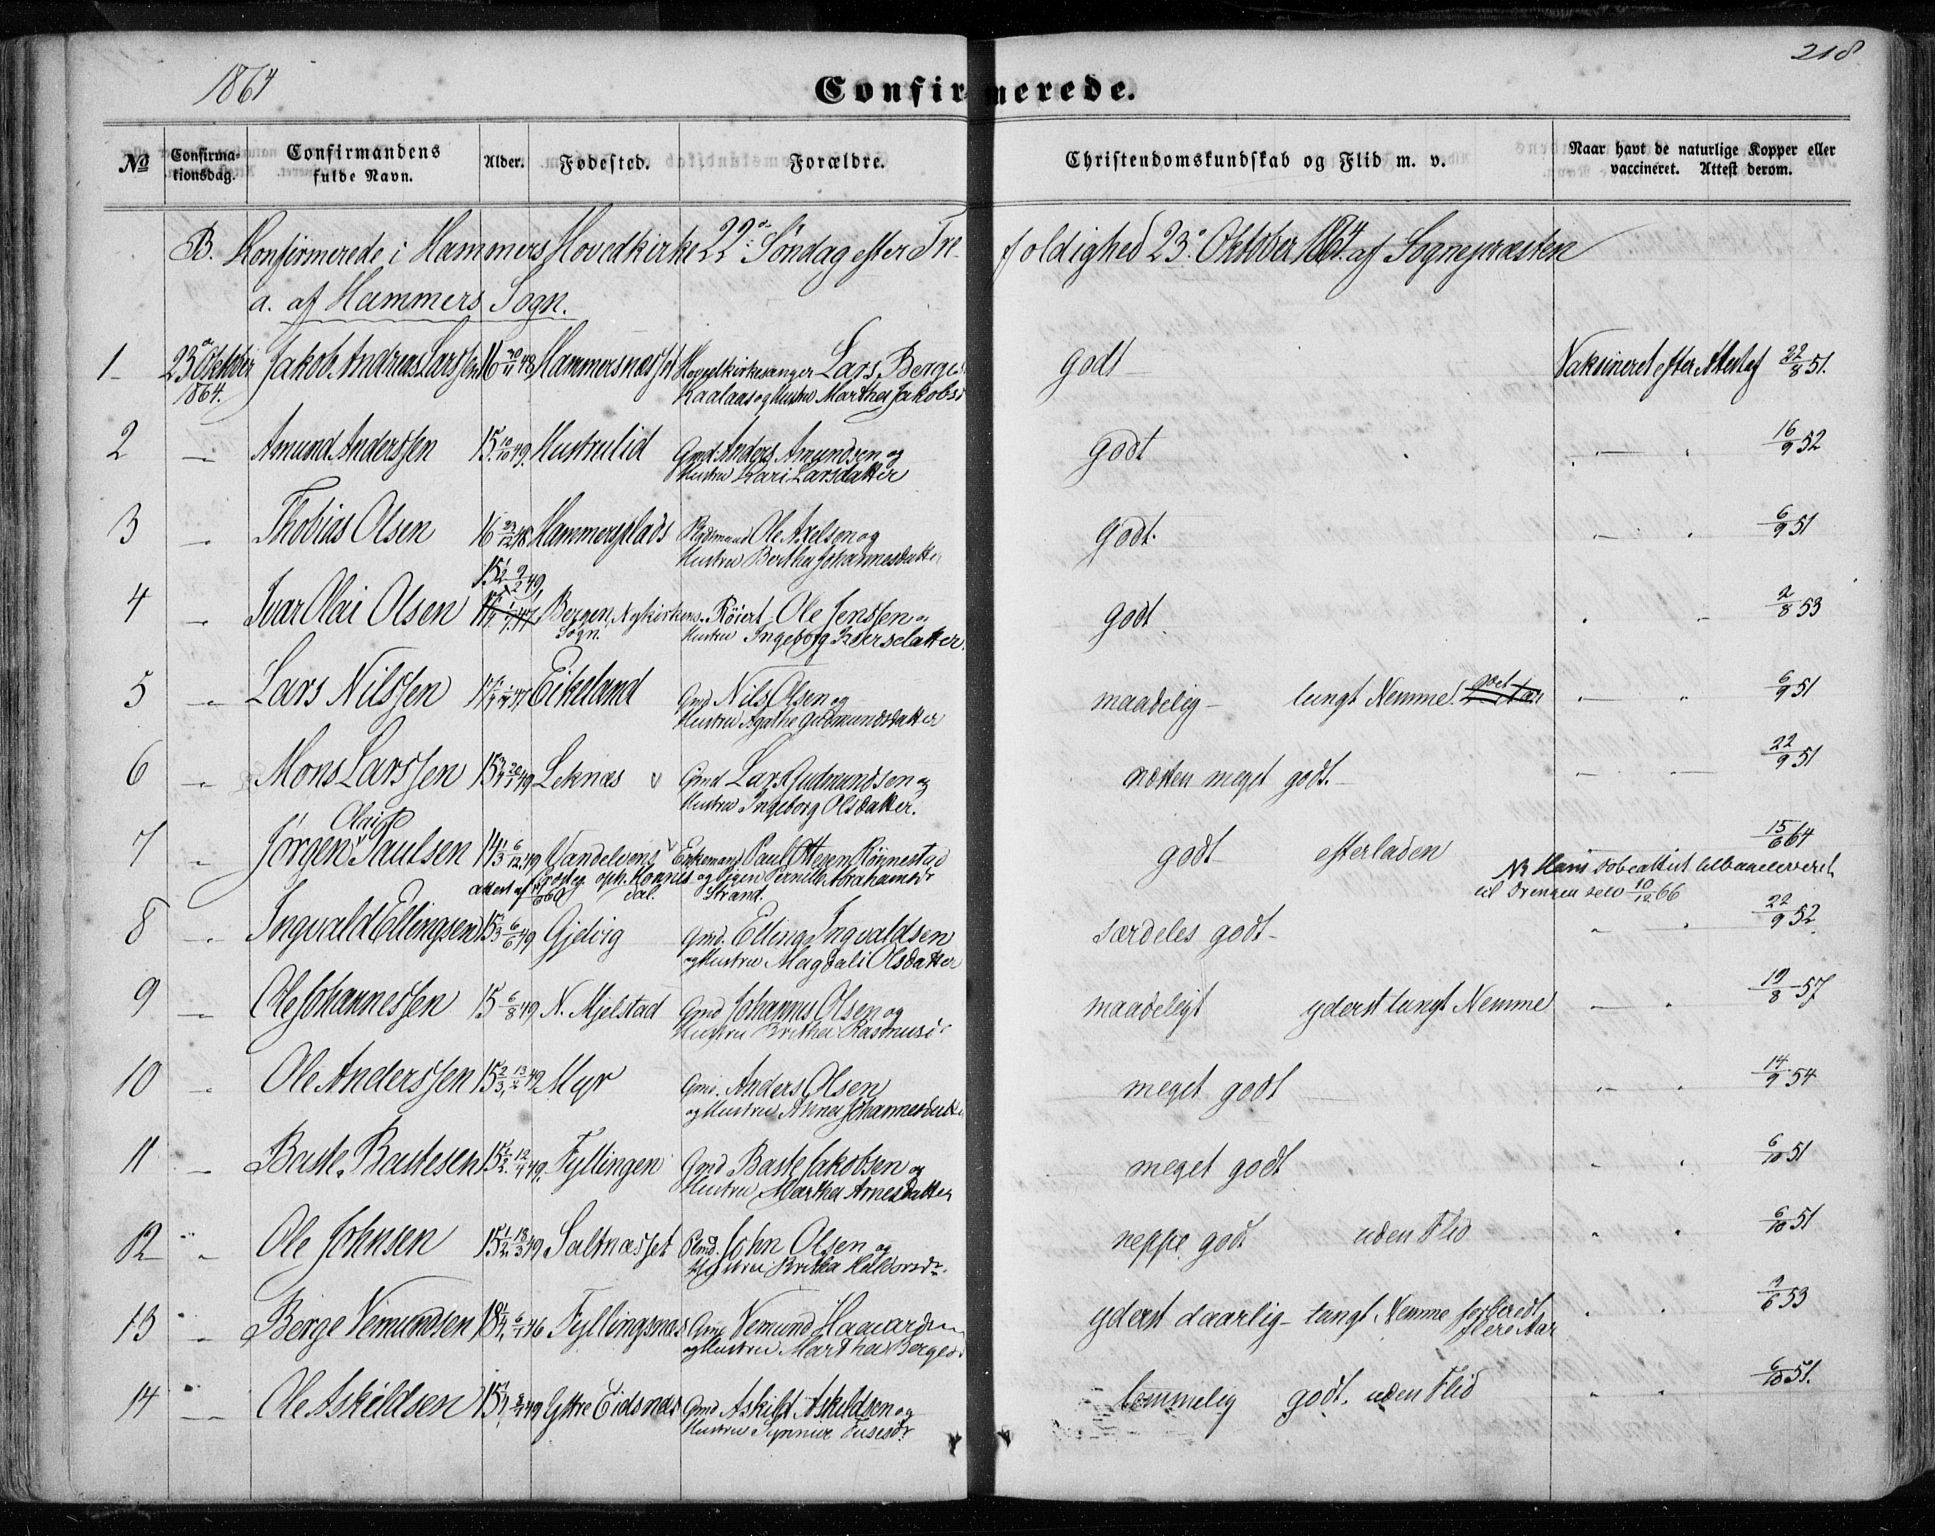 1864
218
Confirmerede.
No
Confirma-
tionsdag.
Confirmandens
fulde Navn.
Alder.
Fødested.
Forældre.
Christendomskundskab og Flid m. v.
Naar havt de naturlige Kopper eller
vaccineret. Attest derom.
B. Konfirmerede i Hammers Hovedkirke 22de Søndag efter Tre- foldighed 23de Oktober 1864 af Sognepræsten
a. af Hammers Sogn.
1 23de Oktober Jakob Andreas Larssen 16 20/11 48 Hammersnæsset Hovedkirkesanger Lars Berges. godt Vaksineret efter Attest af 22/8 51.
1864. Kaalaas og Hustru Martha Jakobsd
2 Amund Anderssen 15 10/10 49. Hustrulid Gmd. Anders Amundsen og godt 16/9 52
Hustru Kari Larsdatter
3 Thobias Olsen 16 23/12 48 Hammersplads Pladsmand Ole Axelsen og godt. 6/9 51
Hustru Bertha Johannesdatter
15 1/2 9/2 49,
4 Ivar Olai Olsen Bergen, Nykirkens Røiert, Ole Jenssen og godt 2/8 53
Sogn. Hustru Ingeborg Iversdatter.
5 Lars Nilssen 17 47 Eikeland Gmd Nils Olsen og maadelig lungt Nemme. 6/9 51
Hustru Agathe Gudmundsdatter
6 Mons Larssen 15 3/4 20/1 49 Leknæs Gmd Lars Gudmundsen og næsten meget godt. 22/9 51
Hustru Ingeborg Olsdatter.
Olai
7 Jørgen Paulsen 14 6/12 49 Vandelvens Enkemand Paul Ottesen Rønnestad godt efterladen 15/6 64
attest af Præsteg. oph. Honnis- og Pigen Pernille Abrahamsdr
dal. Strand.
NB Hans Dobeattest tilbageleveret
til Drengen selv 10/12 66
8 Ingvald Ellingsen 15 1/3 6/6 49 Gjelvig Gmd. Elling Ingvaldsen særdeles godt 22/9 52.
og Hustru Magdali Olsdatter
9 Ole Johannessen 15 6/8 49 N. Mjelstad Gmd Johannes Olsen og maadeligt yderst tungt Nemme 19/8 57
Hustru Britha Rasmusd
10 Ole Anderssen 15 2/3, 13/2 49 Myr Gmd. Anders Olsen meget godt 14/9 54
og Hustru Anna Johannesdatter
11 Baste Bastesen 15 1/2. 12/4 49. Fyllingen Gmd Baste Jakobsen og meget godt 6/10 51
Hustru Martha Arnesdatter
12 Ole Johnsen 15 1/2 18/3 49 Saltnæsset Plmd. John Olsen og neppe godt uden Flid 6/10 51
Hustru Britha Haldorsdr.
13 Berge Vemundsen 18 6/7 46 Fyllingsnæs Gmd Vemund Haavardsen yderst daarlig tungt Nemme forberedt 53
og Hustru Martha Berged flere Aar
14 Ole Askildsen 15 49 Ytre Eidsnes Gmd Askild Askildsen og temmelig godt. uden Flid 6/10 51.
Hustru Synneve